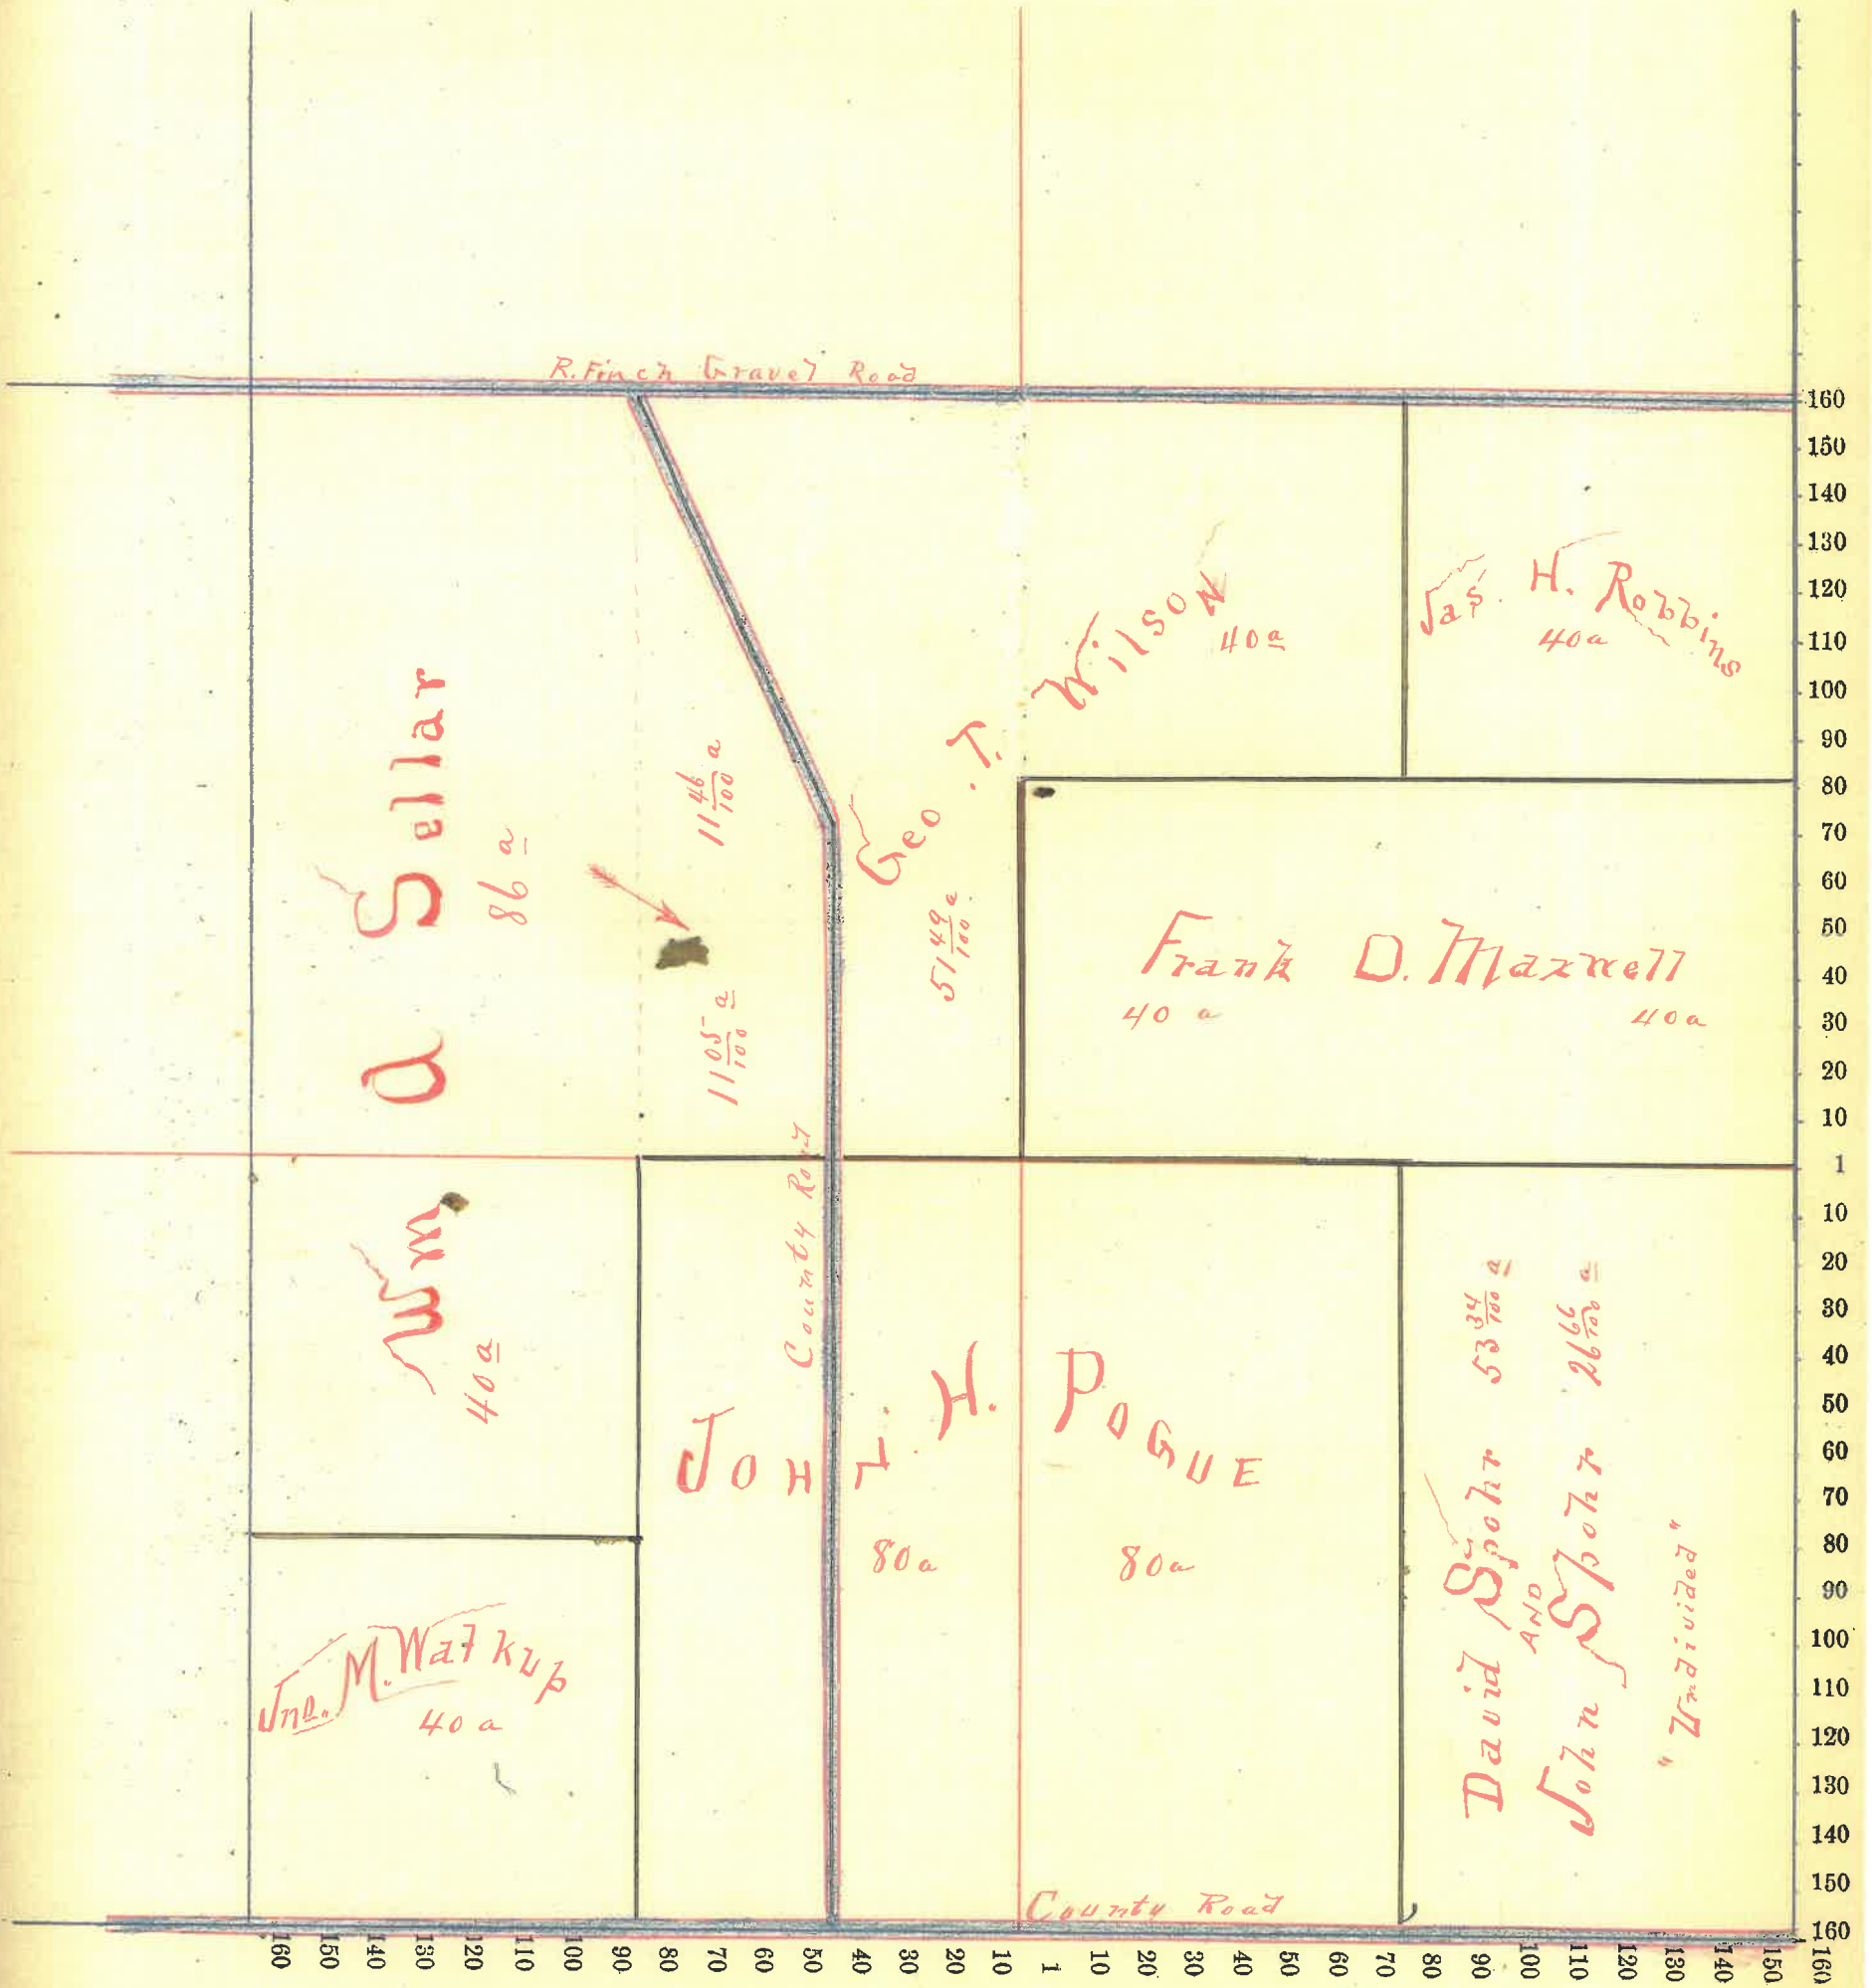 R. Finch Gravel Road
Wm a Sellar
86 a
40 a
11 46/100 a
11 05/100 a
Geo. T. Wilson
40 a
51 49/100 a
Jas. H. Robbins
40 a
Frank D. Maxwell
40 a
40 a
County Road
JOHN. H. POGUE
80 a
80 a
David Spohr 53 34/100 a
AND
John Spohr 26 66/100 a
"Undivided"
Jno. M. Walkup
40 a
County Road
160
150
140
130
120
110
100
90
80
70
60
50
40
30
20
10
1
10
20
30
40
50
60
70
80
90
100
110
120
130
140
150
160
160 150 140 130 120 110 100 90 80 70 60 50 40 30 20 10 1 10 20 30 40 50 60 70 80 90 100 110 120 130 140 150 160